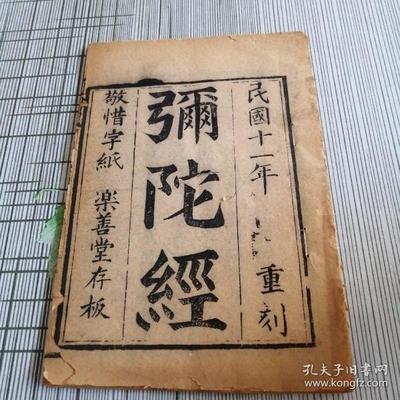 民國十一年 重刻
彌陀經
敬惜字紙 樂善堂存板
孔夫子旧书网
kongfz.com